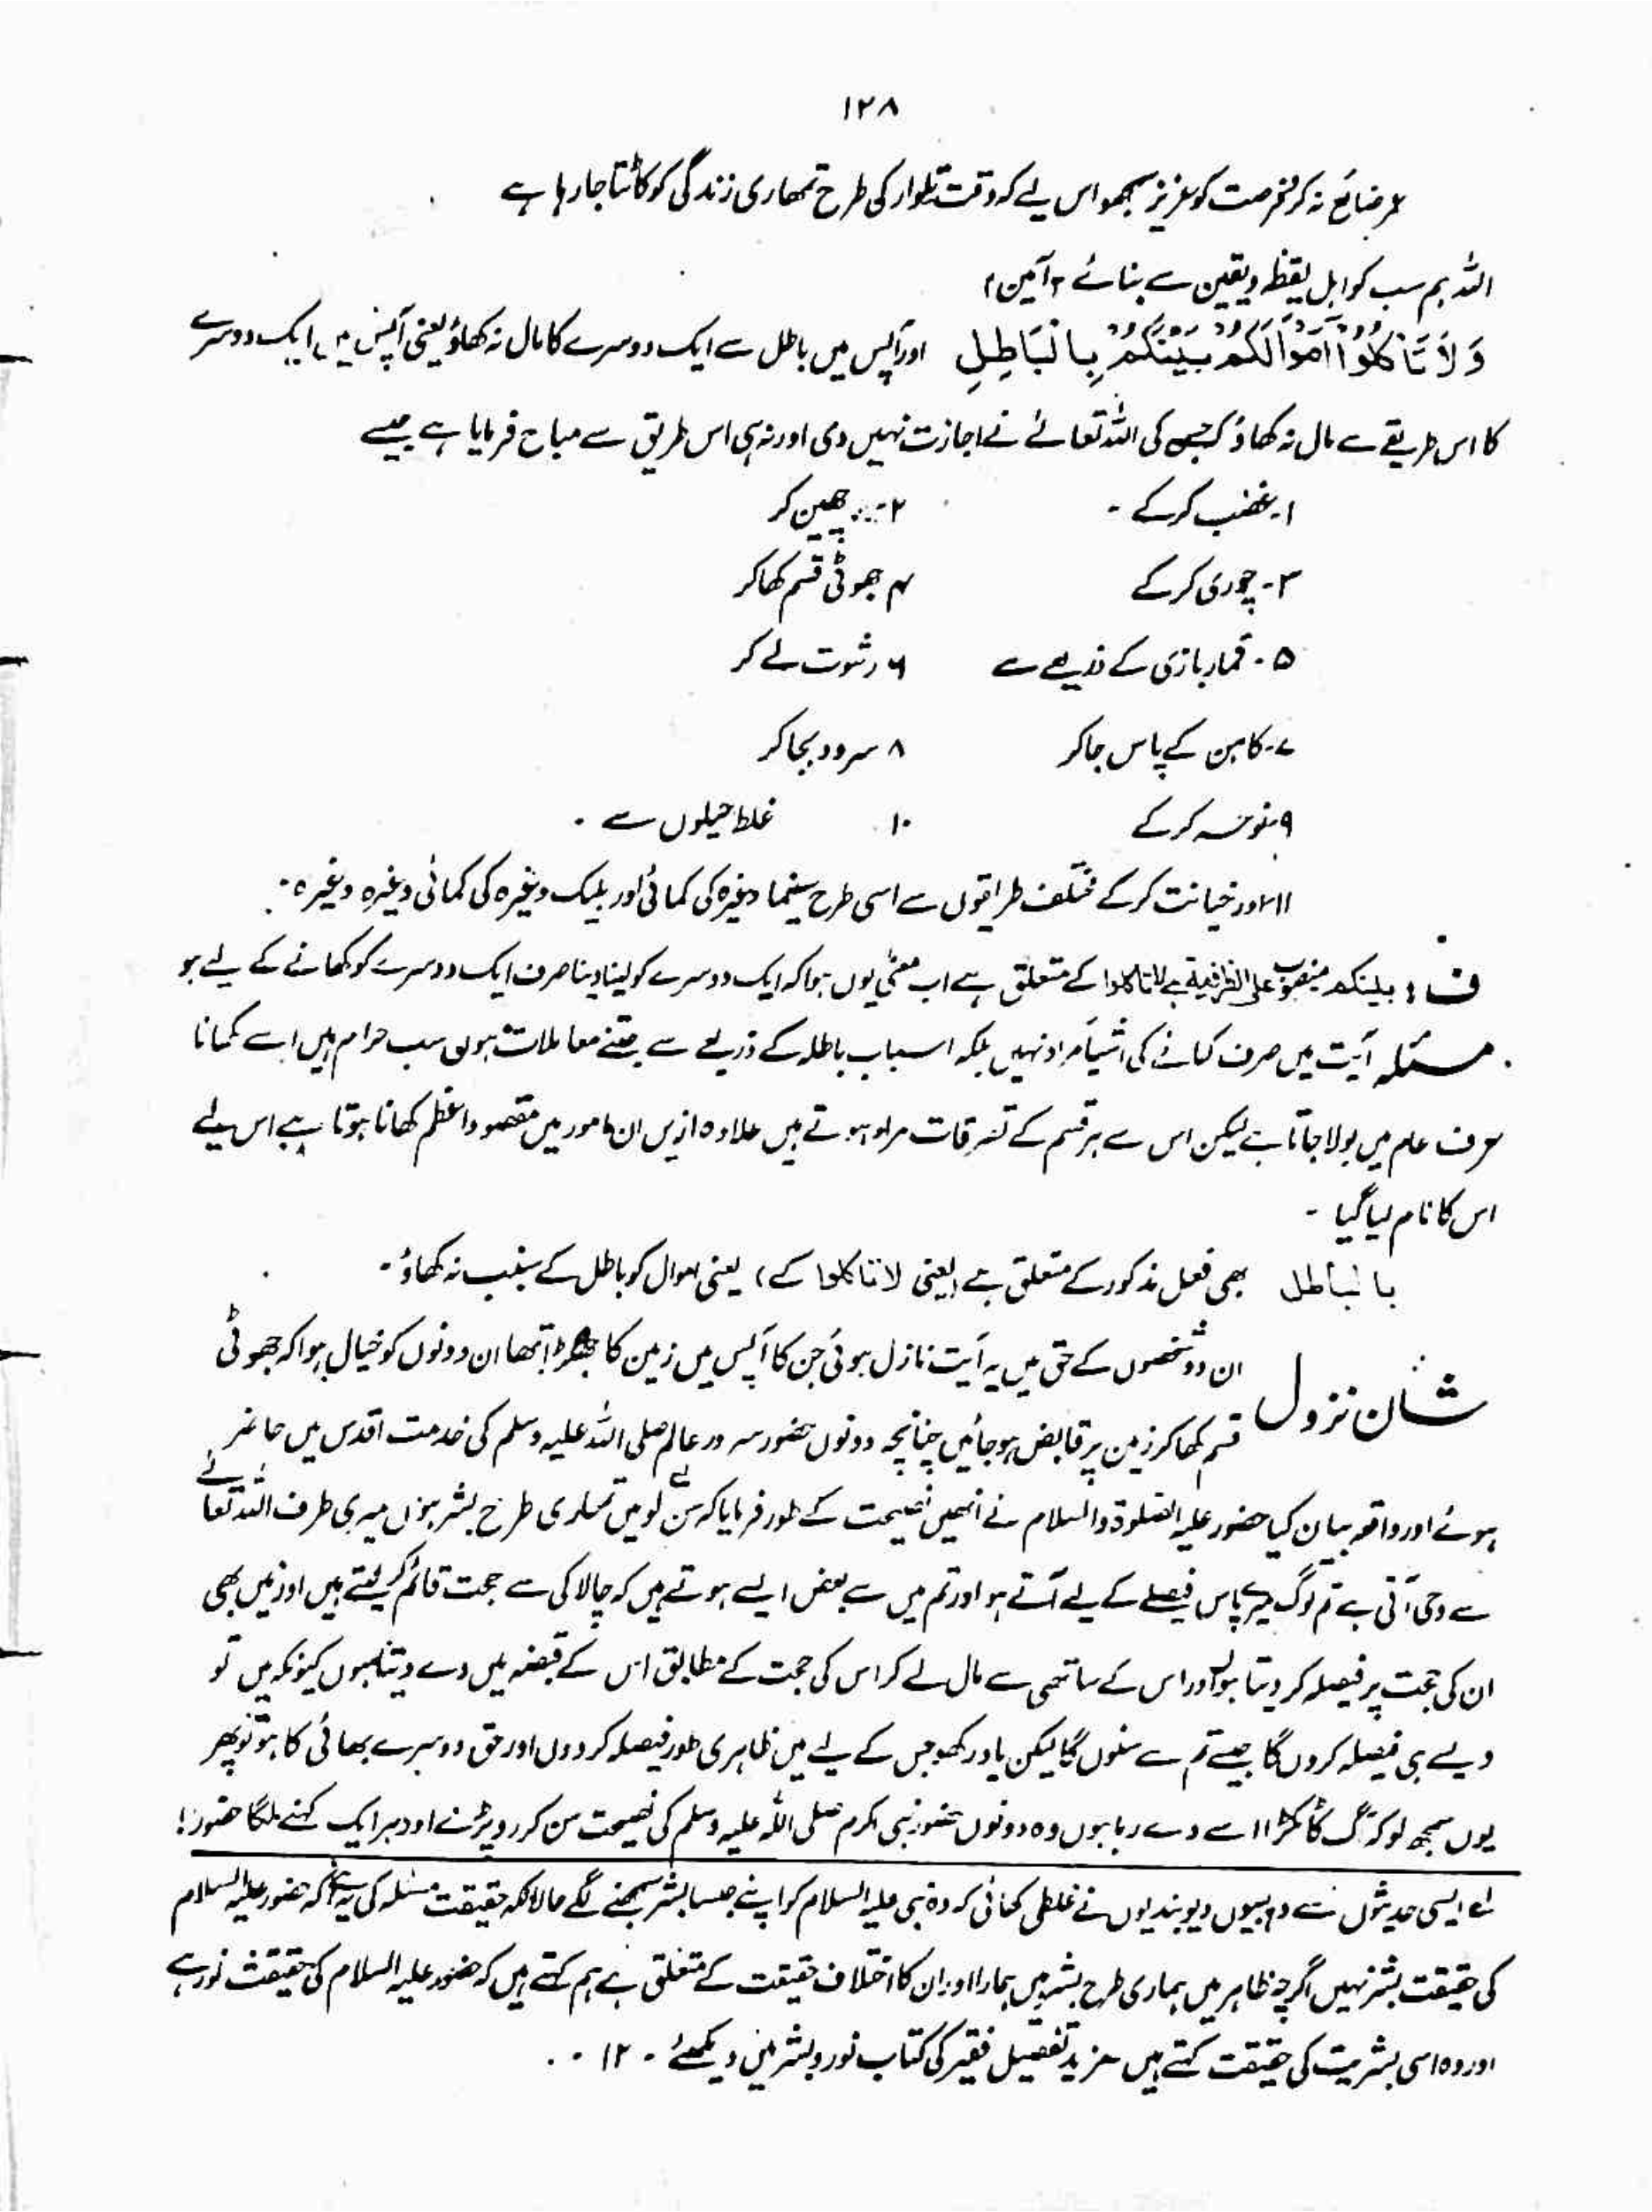 ١٢٨
عمر ضائع نہ کر فرصت کو عزیز سمجھو اس لیے کہ وقت تلوار کی طرح تمھاری زندگی کو کاٹتا جا رہا ہے
اللہ ہم سب کو اہل یقظہ و یقین سے بنائے (آمین)
وَلَا تَأْكُلُوْا اَمْوَالَكُمْ بَيْنَكُمْ بِالْبَاطِلِ اور آپس میں باطل سے ایک دوسرے کا مال نہ کھاؤ یعنی آپس میں ایک دوسرے
کا اس طریقے سے مال نہ کھاؤ کہ جس کی اللہ تعالےٰ نے اجازت نہیں دی اور نہ ہی اس طریق سے مباح فرمایا ہے جیسے
۱۔ غضب کرکے ۔ ۲۔ چھین کر
۳۔ چوری کرکے ۴ جھوٹی قسم کھا کر
۵۔ قمار بازی کے ذریعے سے ۶ رشوت لے کر
۷۔ کاہن کے پاس جا کر ۸ سرود بجا کر
۹ نوحہ کرکے ۱۰ غلط حیلوں سے ۔
۱۱ اور خیانت کرکے مختلف طریقوں سے اسی طرح سینما وغیرہ کی کمائی اور بلیک وغیرہ کی کمائی وغیرہ وغیرہ ۔
ف : بینکم منصوب علی الظرفیة ہے لا تاکلوا کے متعلق ہے اب معنیٰ یوں ہوا کہ ایک دوسرے کو لینا دینا صرف ایک دوسرے کو کھانے کے لیے ہو
مسئلہ آیت میں صرف کھانے کی اشیاء مراد نہیں بلکہ اسباب باطلہ کے ذریعے سے جتنے معاملات ہوں سب حرام ہیں اسے کھانا
عرف عام میں بولا جاتا ہے لیکن اس سے ہر قسم کے تصرفات مراد ہوتے ہیں علاوہ ازیں ان امور میں مقصود اعظم کھانا ہوتا ہے اس لیے
اس کا نام لیا گیا ۔
بالباطل بھی فعل مذکور کے متعلق ہے (یعنی لا تاکلوا کے) یعنی اموال کو باطل کے سبب نہ کھاؤ ۔
شان نزول ان دو شخصوں کے حق میں یہ آیت نازل ہوئی جن کا آپس میں زمین کا جھگڑا تھا ان دونوں کو خیال ہوا کہ جھوٹی
قسم کھا کر زمین پر قابض ہو جائیں چنانچہ دونوں حضور سرور عالم صلی اللہ علیہ وسلم کی خدمت اقدس میں حاضر
ہوئے اور واقعہ بیان کیا حضور علیہ الصلوۃ والسلام نے انھیں نصیحت کے طور فرمایا کہ سن لو میں تمہاری طرح بشر ہوں میری طرف اللہ تعالےٰ
سے وحی آتی ہے تم لوگ میرے پاس فیصلے کے لیے آتے ہو اور تم میں سے بعض ایسے ہوتے ہیں کہ چالاکی سے حجت قائم کر لیتے ہیں اور میں بھی
ان کی حجت پر فیصلہ کر دیتا ہوں اور اس کے ساتھی سے مال لے کر اس کی حجت کے مطابق اس کے قبضہ میں دے دیتا ہوں کیونکہ میں تو
ویسے ہی فیصلہ کروں گا جیسے تم سے سنوں گا لیکن یاد رکھو جس کے لیے میں ظاہری طور فیصلہ کر دوں اور حق دوسرے بھائی کا ہو تو پھر
یوں سمجھ لو کہ آگ کا ٹکڑا اسے دے رہا ہوں وہ دونوں حضور نبی اکرم صلی اللہ علیہ وسلم کی نصیحت سن کر رو پڑے اور ہر ایک کہنے لگا حضور !
لے ایسی حدیثوں سے وہابیوں دیوبندیوں نے غلطی کھائی کہ وہ نبی علیہ السلام کو اپنے جیسا بشر سمجھنے لگے حالانکہ حقیقت مسئلہ کی یہ ہے کہ حضور علیہ السلام
کی حقیقت بشر نہیں اگرچہ ظاہر میں ہماری طرح بشر ہیں ہمارا اور ان کا اختلاف حقیقت کے متعلق ہے ہم کہتے ہیں کہ حضور علیہ السلام کی حقیقت نور ہے
اور وہ اسی بشریت کی حقیقت کہتے ہیں مزید تفصیل فقیر کی کتاب نور و بشر میں دیکھئے ۔ ۱۲ ۔